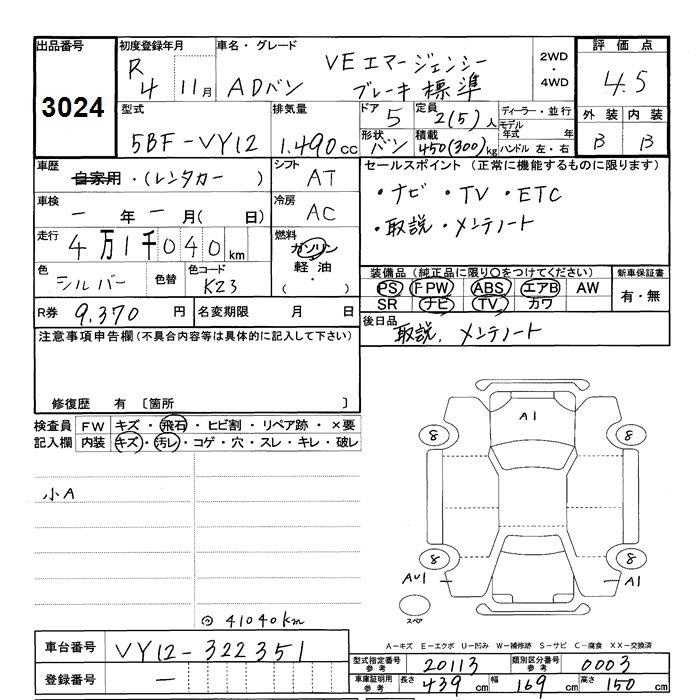 出品番号 初度登録年月 車名・グレード 2WD・4WD 評価点
3024 R4 11月 ADバン VEエマージェンシーブレーキ標準 4.5
型式 排気量 ドア 5 定員 2(5)人 ディーラー・並行 外装 内装
5BF-VY12 1.490cc 形状 バン 積載 450(300)kg モデル年式 年 B B
ハンドル 左・右
車歴 自家用・(レンタカー) シフト AT セールスポイント(正常に機能するものに限ります)
車検 ー年ー月(日) 冷房 AC ・ナビ ・TV ・ETC
・取説・メンテノート
走行 4万1千040km 燃料 ガソリン 軽油 (・)
色 シルバー 色替 色コード K23
装備品(純正品に限り○をつけてください) 新車保証書
PS PW ABS エアB AW 有・無
SR ナビ TV カワ
R券 9.370円 名変期限 月 日
後日品 取説. メンテノート
注意事項申告欄(不具合内容等は具体的に記入して下さい)
修復歴 有 〔箇所 〕
検査員 FW キズ・飛石・ヒビ割・リペア跡・×要
記入欄 内装 キズ・汚レ・コゲ・穴・スレ・キレ・破レ
A1
8 8
小A
8 8
AU1 A1
スペア
41040km
A-キズ E-エクボ U-凹み W-補修跡 S-サビ C-腐食 XX-交換済
車台番号 VY12-322351
型式指定番号 参考 20113 類別区分番号 参考 0003
登録番号 ー
車庫証明用 参考 長さ 439cm 幅 169cm 高さ 150cm